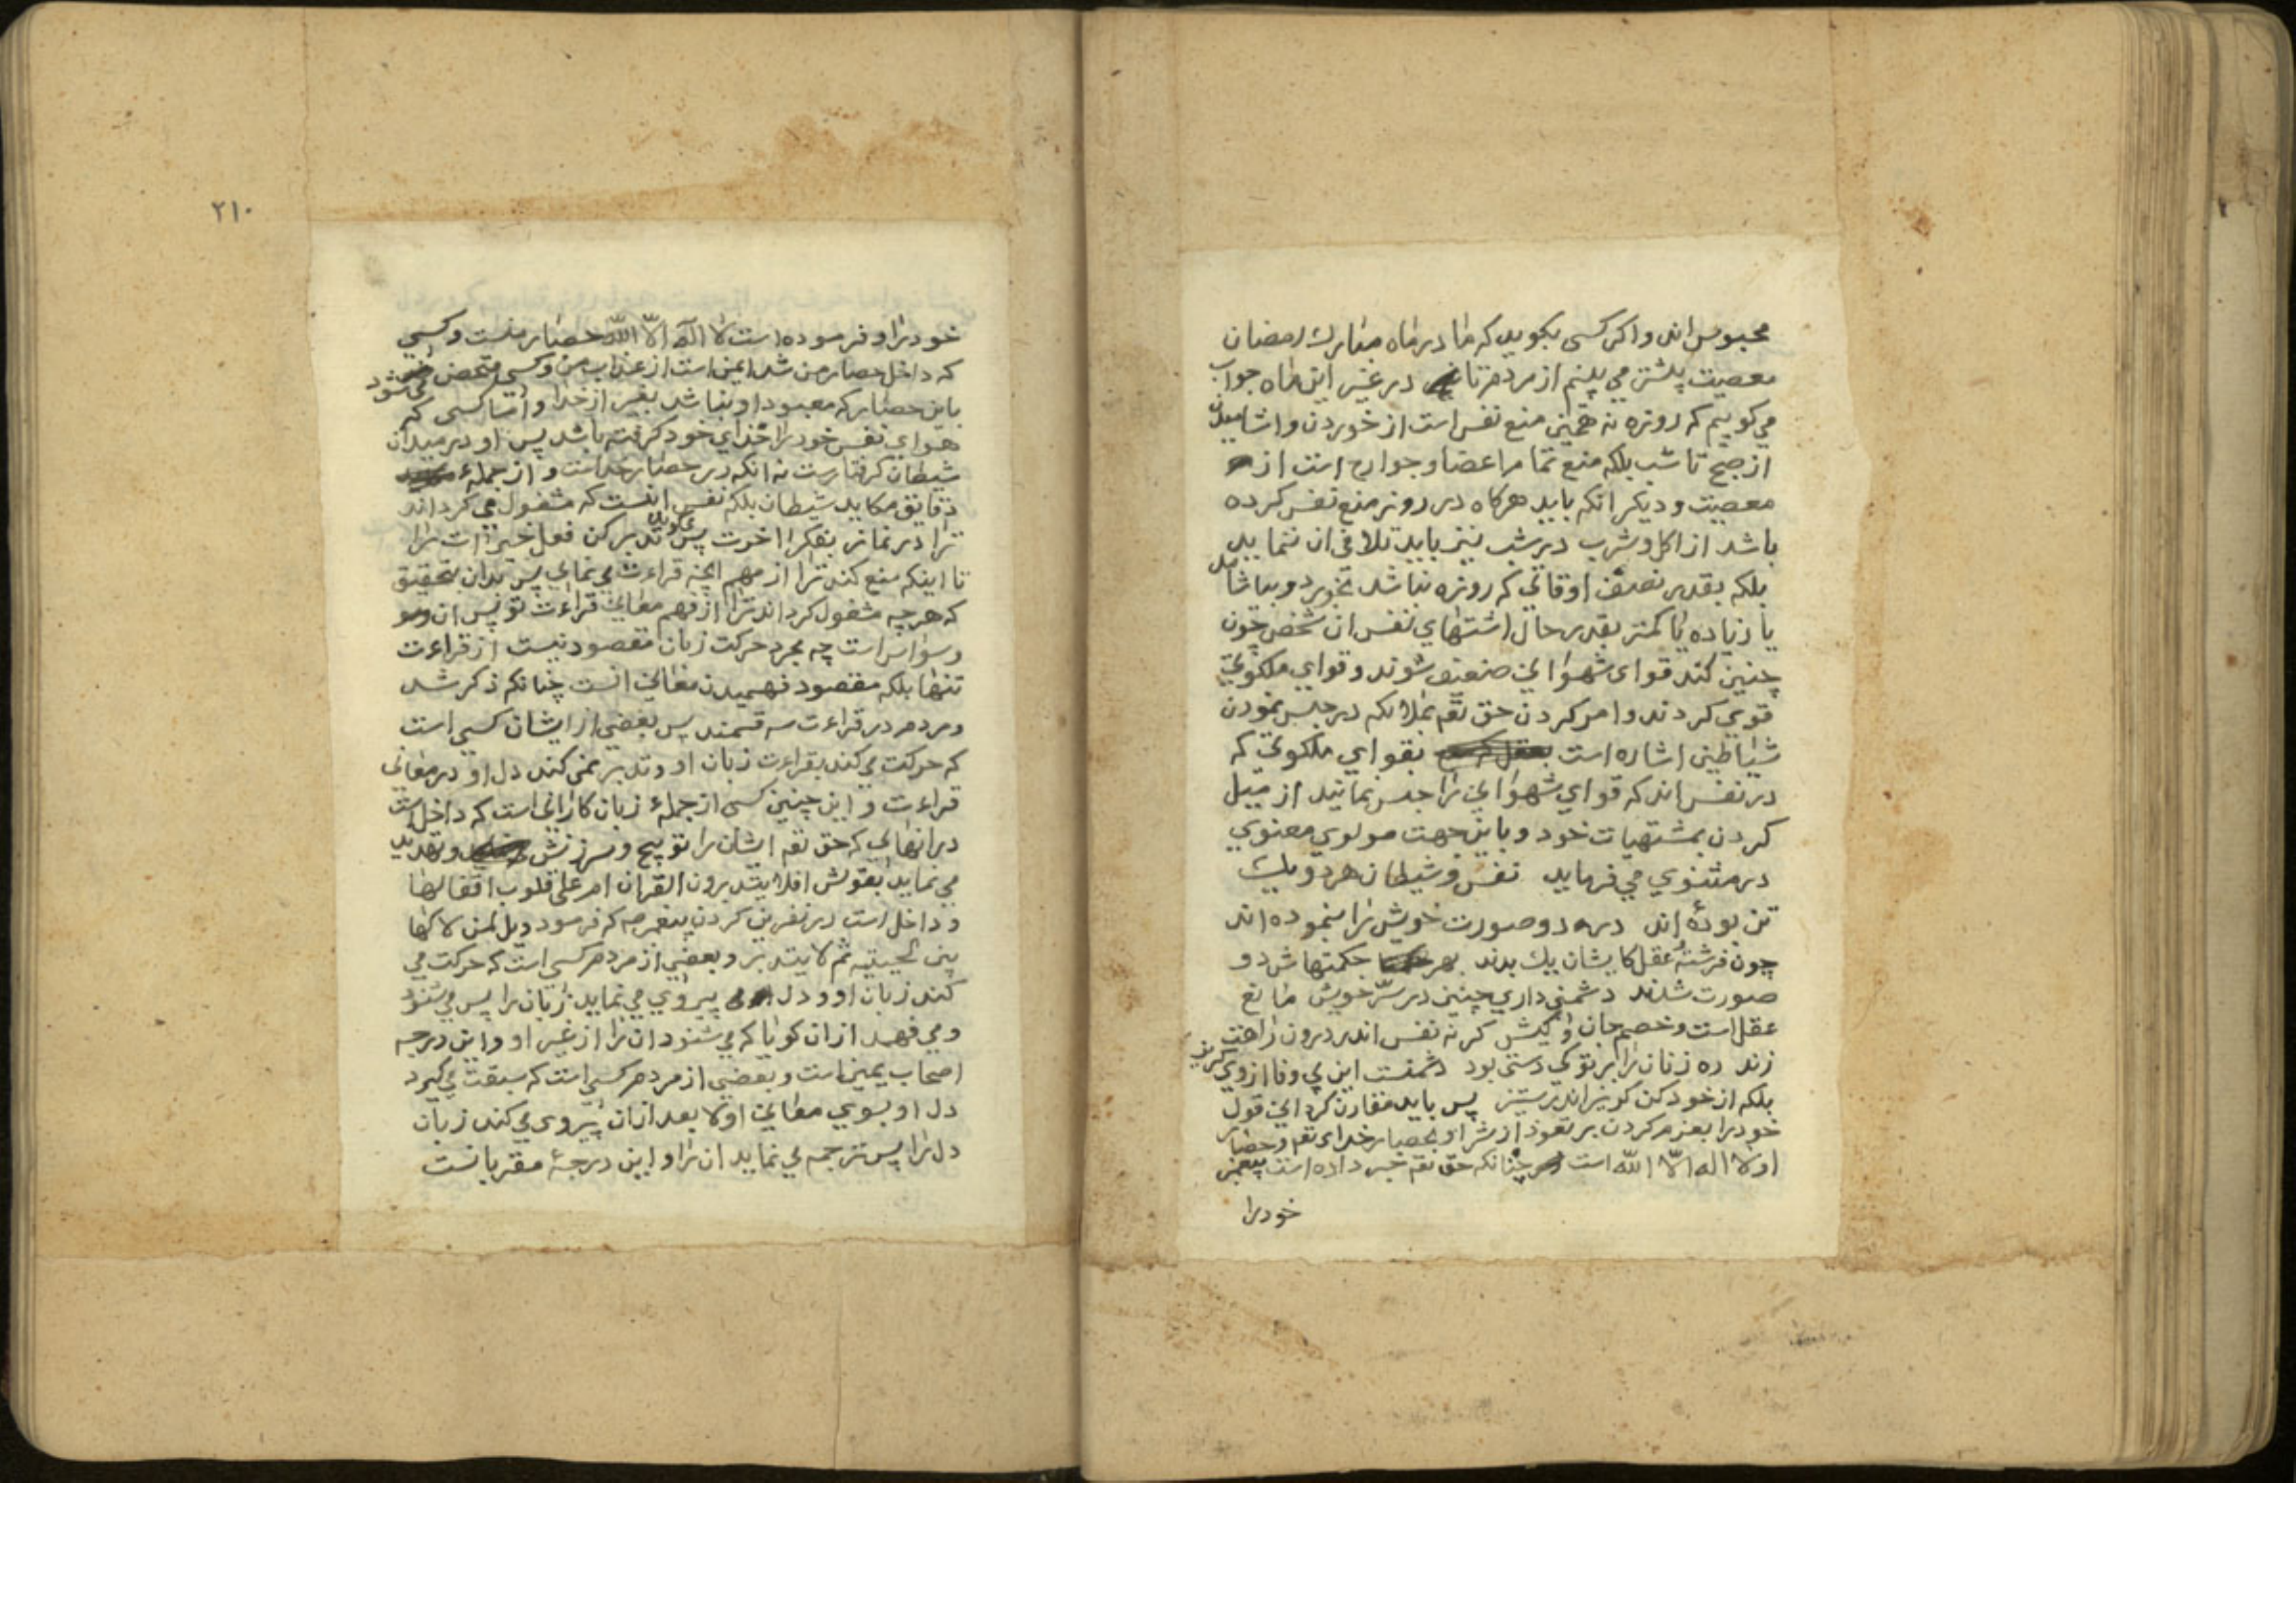 محبوس اند و اکر کسی بکوید که ما در ماه مبارک رمضان
معصیت پیشتر می بینم از مردم تا در غیر این ماه جواب
می کوییم که روزه نه همین منع نفس است از خوردن و اشامیدن
از صبح تا شب بلکه منع تمام اعضا و جوارح است از
معصیت و دیکر انکه باید هرکاه در روز منع نفس کرده
باشد از اکل و شرب در شب نیز باید تلافی ان ننماید
بلکه بقدر نصف اوقاتی که روزه نباشد بخورد و بیاشامد
یا زیاده یا کمتر بقدر حال اشتهای نفس ان شخص چون
چنین کند قوای شهوانی ضعیف شوند و قوای ملکوتی
قوی کردند و امر کردن حق تعم بملائکه در حبس نمودن
شیاطین اشاره است بقوای ملکوتی که
در نفس اند که قوای شهوانی را حبس نمائید از میل
کردن بمشتهیات خود و باین جهت مولوی معنوی
در مثنوی می فرماید نفس و شیطان هر دو یک
تن بوده اند در دو صورت خویش را بنموده اند
چون فرشته عقل کایشان یک بدند بهر حکمتهاش دو
صورت شدند دشمنی داری چنین در سر خویش مانع
عقل است و خصم جان و کیش کر نه نفس اندر درون راهت
زند ره زنان را بر تو کی دستی بود دشمنست این بی وفا از وی کریز
بلکه از خود کن کریز اندر ستیز پس باید مقارن کردانی قول
خود را بعزم کردن بر تعوذ از شر او بحصار خدای تعم و حصار
او لا اله الا الله است چنانکه حق تعم خبر داده است پیغمبر
خود را
۲۱۰
خود را و فرموده است لا اله الا الله حصار منست و کسی
که داخل حصار من شد ایمن است از عذاب من و کسی متحصن می شود
باین حصار که معبود او نباشد بغیر از خدا و اما کسی که
هوای نفس خود را خدای خود کرفته باشد پس او در میدان
شیطان کرفتارست نه انکه در حصار خداست و از جمله
دقایق مکاید شیطان بلکه نفس اینست که مشغول می کرداند
ترا در نماز بفکر اخرت و تدبر کن فعل خیرات را
تا اینکه منع کند ترا از فهم انچه قراءت می نمای پس بدان بتحقیق
که هرچه مشغول کرداند ترا از فهم معانی قراءت تو پس ان
وسواس است چه مجرد حرکت زبان مقصود نیست از قراءت
تنها بلکه مقصود فهمیدن معانی انست چنانکه ذکر شد
و مردم در قراءت سه قسمند پس بعضی از ایشان کسی است
که حرکت می کند بقراءت زبان او و تدبر نمی کند دل او در معانی
قراءت و این چنین کسی از جمله زبان کارانی است که داخل است
در انهائی که حق تعم ایشان را توبیخ و سرزنش و تهدید
می نماید بقولش افلا یتدبرون القران ام علی قلوب اقفالها
و داخل است در نفرین کردن پیغمبر که فرمود ویل لمن لاکها
بین لحییه ثم لا یتدبر و بعضی از مردم کسی است که حرکت می
کند زبان او و دل پیروی می نماید زبان را پس می شنود
و می فهمد از ان کویا که می شنود ان را از غیر او و این درجه
اصحاب یمین است و بعضی از مردم کسی است که سبقت می کیرد
دل او بسوی معانی اولا بعد از ان پیروی می کند زبان
دل را پس ترجمه می نماید ان را و این درجهٔ مقربانست